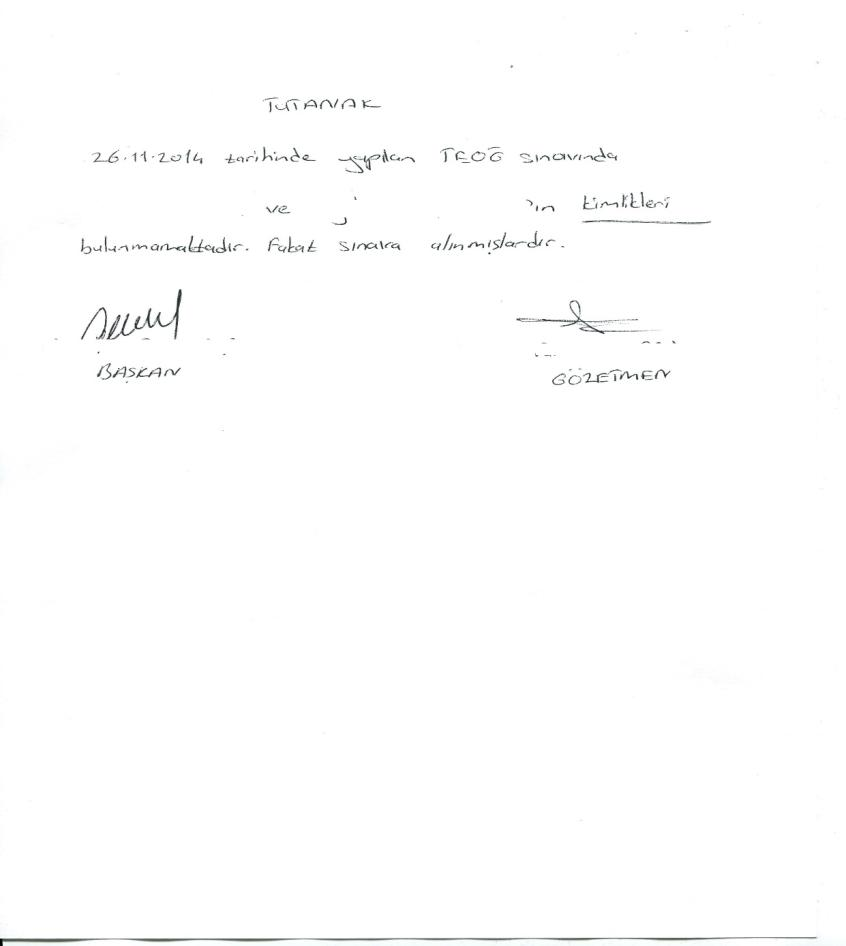 TUTANAK
26.11.2014 tarihinde yapılan TEOG sınavında
ve 'ın kimlikleri
bulunmamaktadır. Fakat sınava alınmışlardır.
BAŞKAN GÖZETMEN